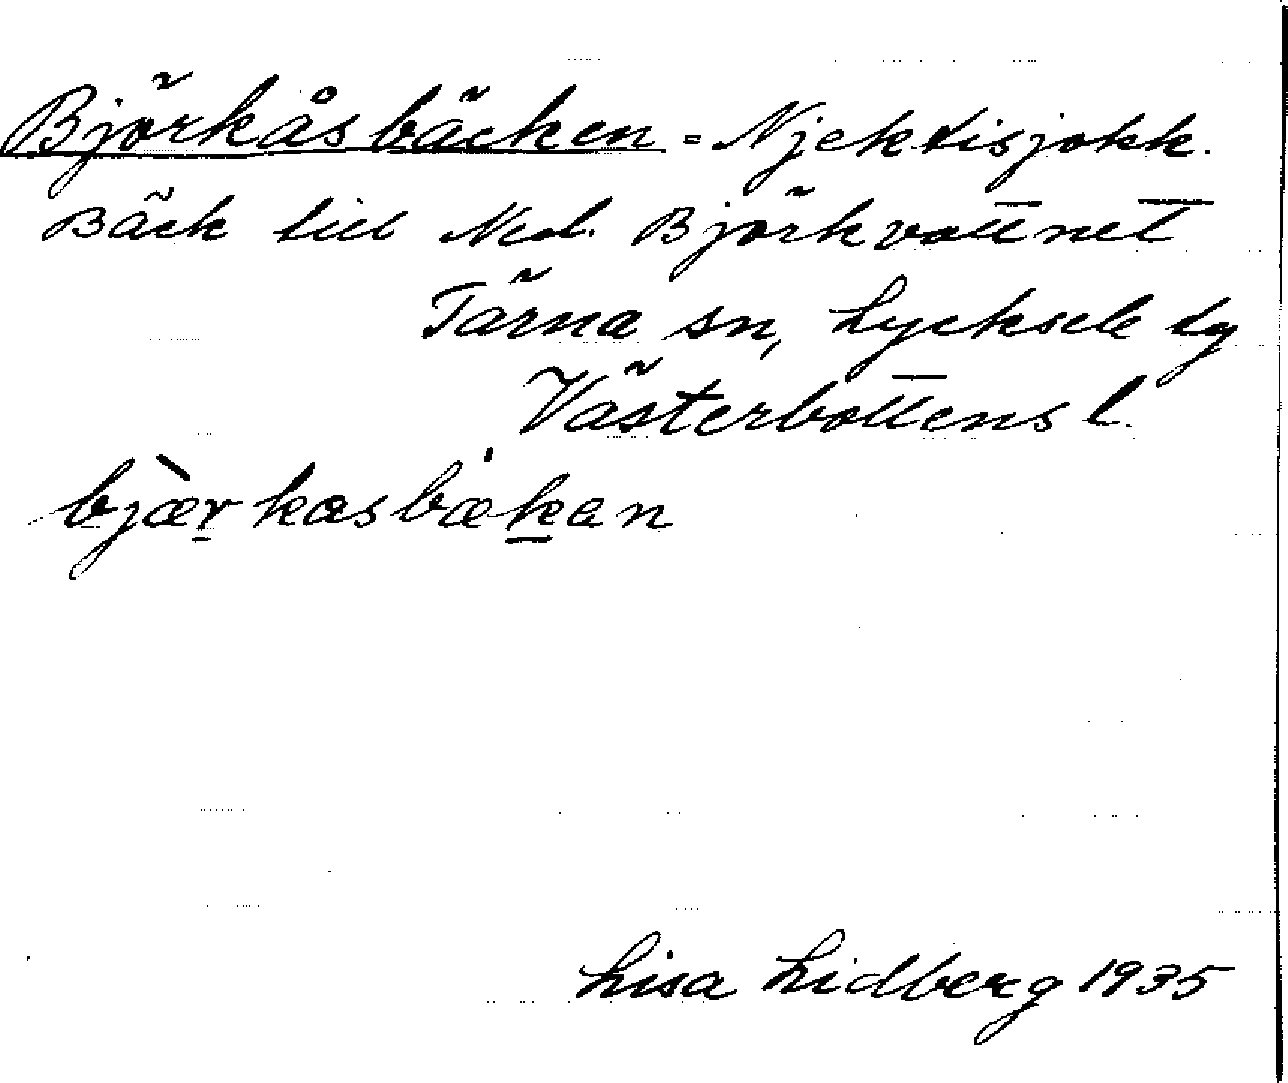 Björkåsbäcken = Njektisjokk.
Bäck till Ned. Björkvattnet
Tärna sn, Lycksele lg
Västerbottens l.
bjær̠kasbæk̠an
Lisa Lidberg 1935